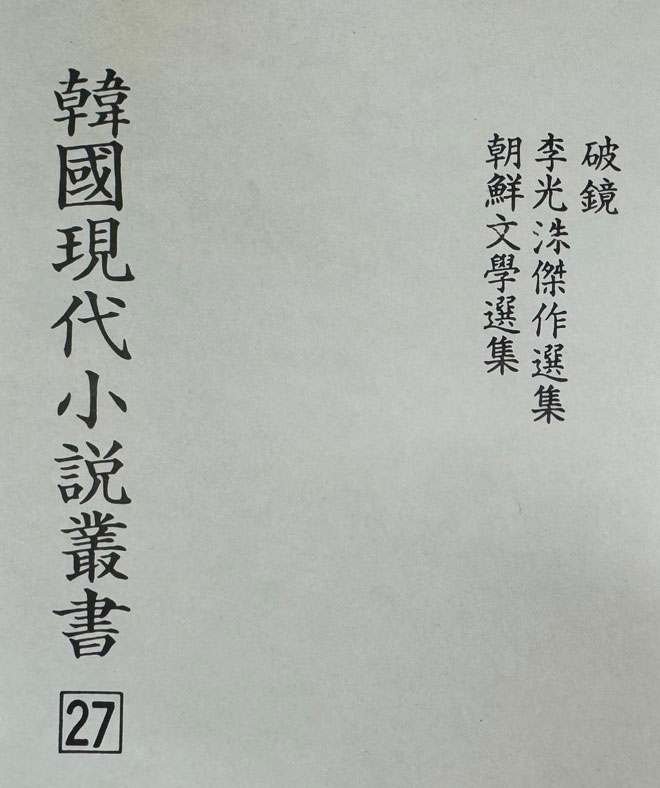 破鏡
李光洙傑作選集
朝鮮文學選集
韓國現代小説叢書
27